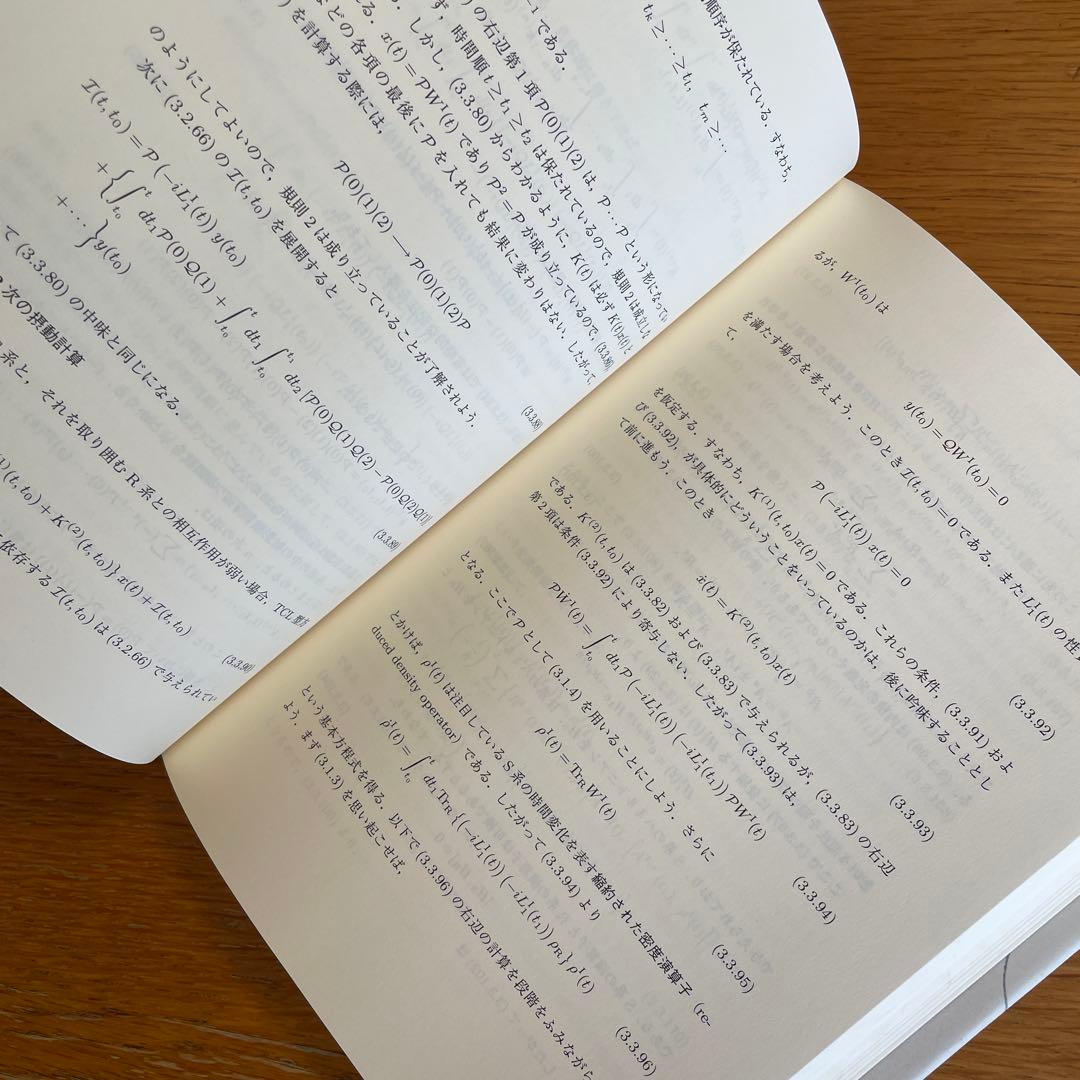 順序が保たれている.すなわち,
t_k ≥ ⋯ ≥ t_1, t_m ≥ ⋯
の右辺第1項 𝒫(0)(1)(2) は,𝒫⋯𝒫 という形になってい
時間順 t ≥ t_1 ≥ t_2 は保たれているので,規則2は成立し
しかし,(3.3.80) からわかるように,K(t) は必ず K(t)x(t) と
x(t) = 𝒫W^I(t) であり 𝒫^2 = 𝒫 が成り立っているので,(3.3.80)
どの各項の最後に 𝒫 を入れても結果に変わりはない.したがって,
を計算する際には,
𝒫(0)(1)(2) ⟶ 𝒫(0)(1)(2)𝒫 (3.3.88)
のようにしてよいので,規則2は成り立っていることが了解されよう.
次に (3.2.66) の ℐ(t, t_0) を展開すると
ℐ(t, t_0) = 𝒫(-iL_1^I(t)) y(t_0)
+ {∫_{t_0}^t dt_1 𝒫(0)𝒬(1) + ∫_{t_0}^t dt_1 ∫_{t_0}^{t_1} dt_2 [𝒫(0)𝒬(1)𝒬(2) - 𝒫(0)𝒬(2)𝒬(1)]
+ ⋯} y(t_0) (3.3.89)
て (3.3.80) の中味と同じになる.
次の摂動計算
系と,それを取り囲む R 系との相互作用が弱い場合,TCL
(t, t_0) + K^{(2)}(t, t_0)} x(t) + ℐ(t, t_0) (3.3.90)
依存する ℐ(t, t_0) は (3.2.66) で与えられてい
るが,W^I(t_0) は
y(t_0) = 𝒬W^I(t_0) = 0
を満たす場合を考えよう.このとき ℐ(t, t_0) = 0 である.また L_1^I(t) の性
て,
𝒫(-iL_1^I(t)) x(t) = 0 (3.3.92)
を仮定する.すなわち,K^{(1)}(t, t_0)x(t) = 0 である.これらの条件,(3.3.91) およ
び (3.3.92),が具体的にどういうことをいっているのかは,後に吟味することとし
て前に進もう.このとき
ẋ(t) = K^{(2)}(t, t_0)x(t) (3.3.93)
である.K^{(2)}(t, t_0) は (3.3.82) および (3.3.83) で与えられるが,(3.3.83) の右辺
第2項は条件 (3.3.92) により寄与しない.したがって (3.3.93) は,
𝒫Ẇ^I(t) = ∫_{t_0}^t dt_1 𝒫(-iL_1^I(t))(-iL_1^I(t_1)) 𝒫W^I(t) (3.3.94)
となる.ここで 𝒫 として (3.1.4) を用いることにしよう.さらに
ρ^I(t) = Tr_R W^I(t) (3.3.95)
とかけば,ρ^I(t) は注目している S 系の時間変化を表す縮約された密度演算子 (re-
duced density operator) である.したがって (3.3.94) より
ρ̇^I(t) = ∫_{t_0}^t dt_1 Tr_R{(-iL_1^I(t))(-iL_1^I(t_1)) ρ_R} ρ^I(t) (3.3.96)
という基本方程式を得る.以下で (3.3.96) の右辺の計算を段階をふみながら
よう.まず (3.1.3) を思い起こせば,